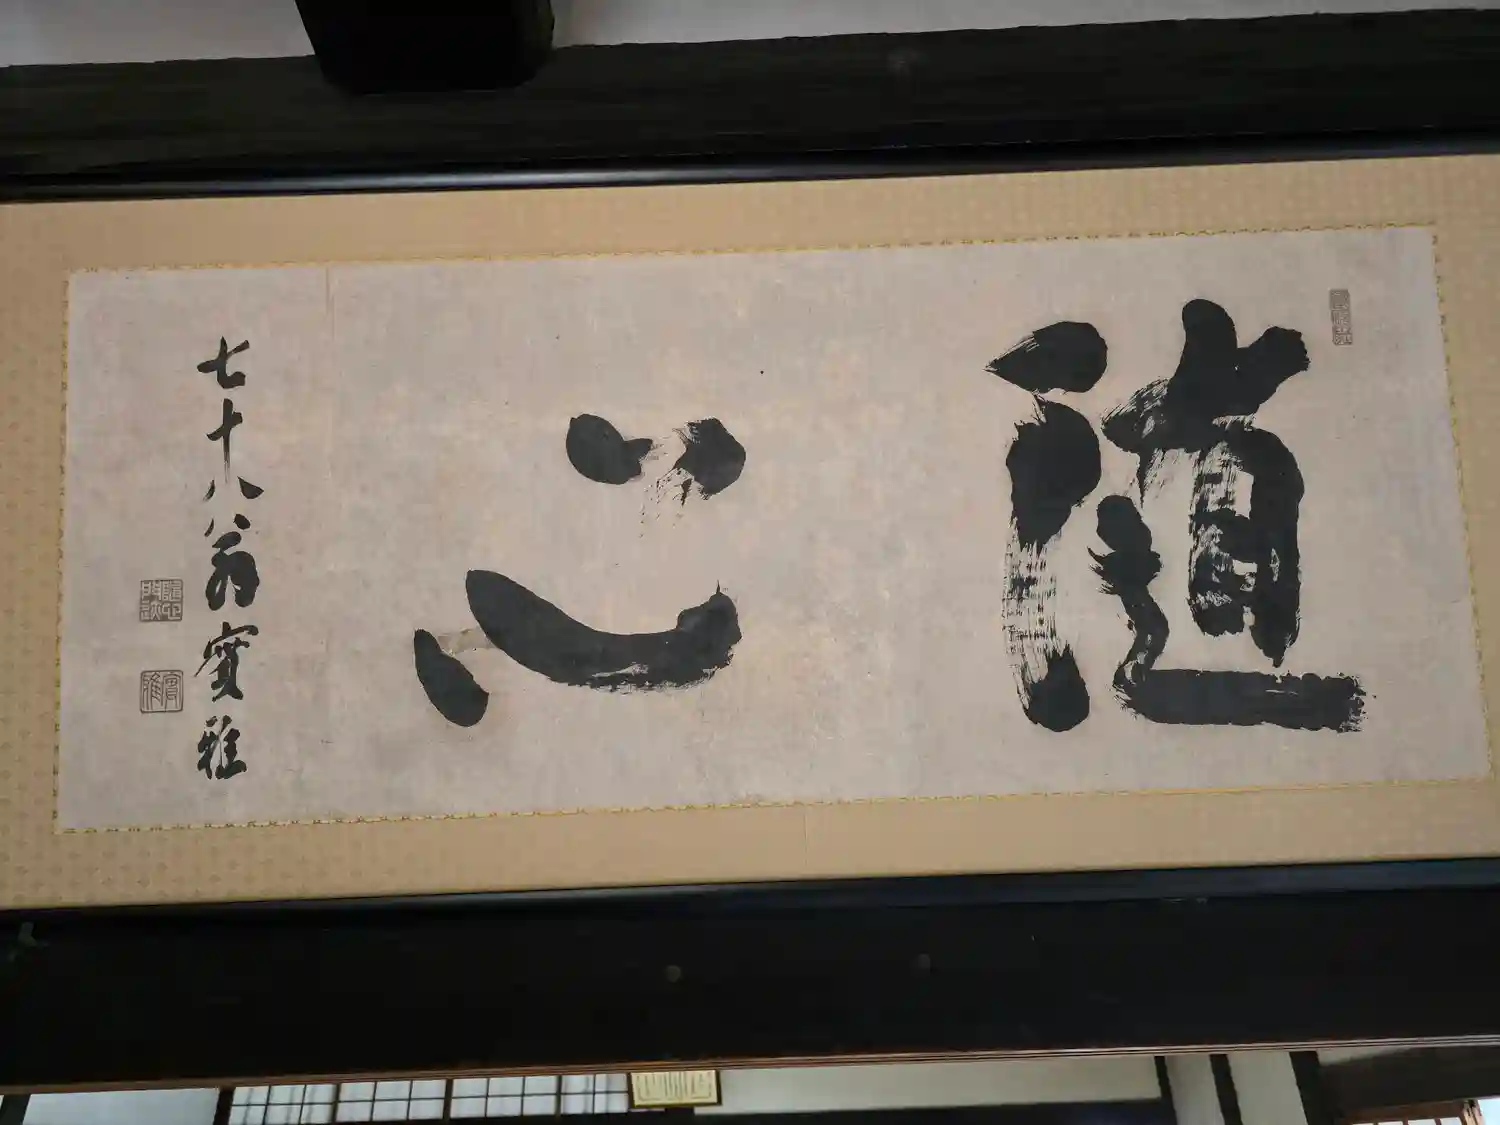 随心
七十八翁實雅